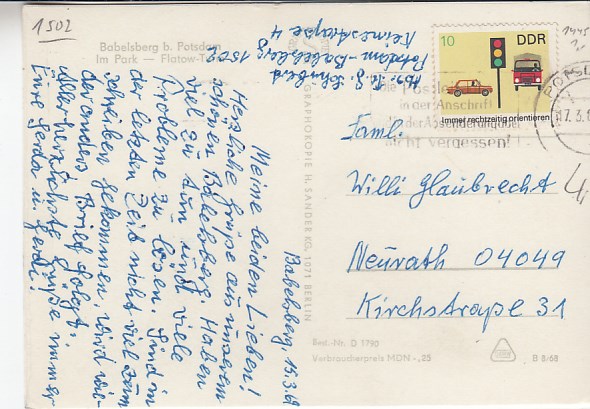 1502
Babelsberg b. Potsdam
Im Park — Flatow-
Abs. G. Schubert
Potsdam-Babelsberg 1502
Heinestraße 4
Babelsberg 15.3.69
Meine beiden Lieben!
Herzliche Grüße aus unserem
schönen Babelsberg. Haben
viel zu tun und viele
Probleme zu lösen. Sind in
der letzten Zeit nicht viel zum
schreiben gekommen, wird
anders, Brief folgt.
Allerherzlichste Grüße immer
Eure Gerda u. Gerdi!
GRAPHOKOPIE H. SANDER KG, 1071 BERLIN
10 DDR
Immer rechtzeitig orientieren
die Postleit
in der Anschrift
und der Absenderangabe
nicht vergessen!
POTSDAM
17.3.6
Faml.
Willi Glaubrecht
Neurath 04049
Kirchstraße 31
Best.-Nr. D 1790
Verbraucherpreis MDN -,25
B 8/68